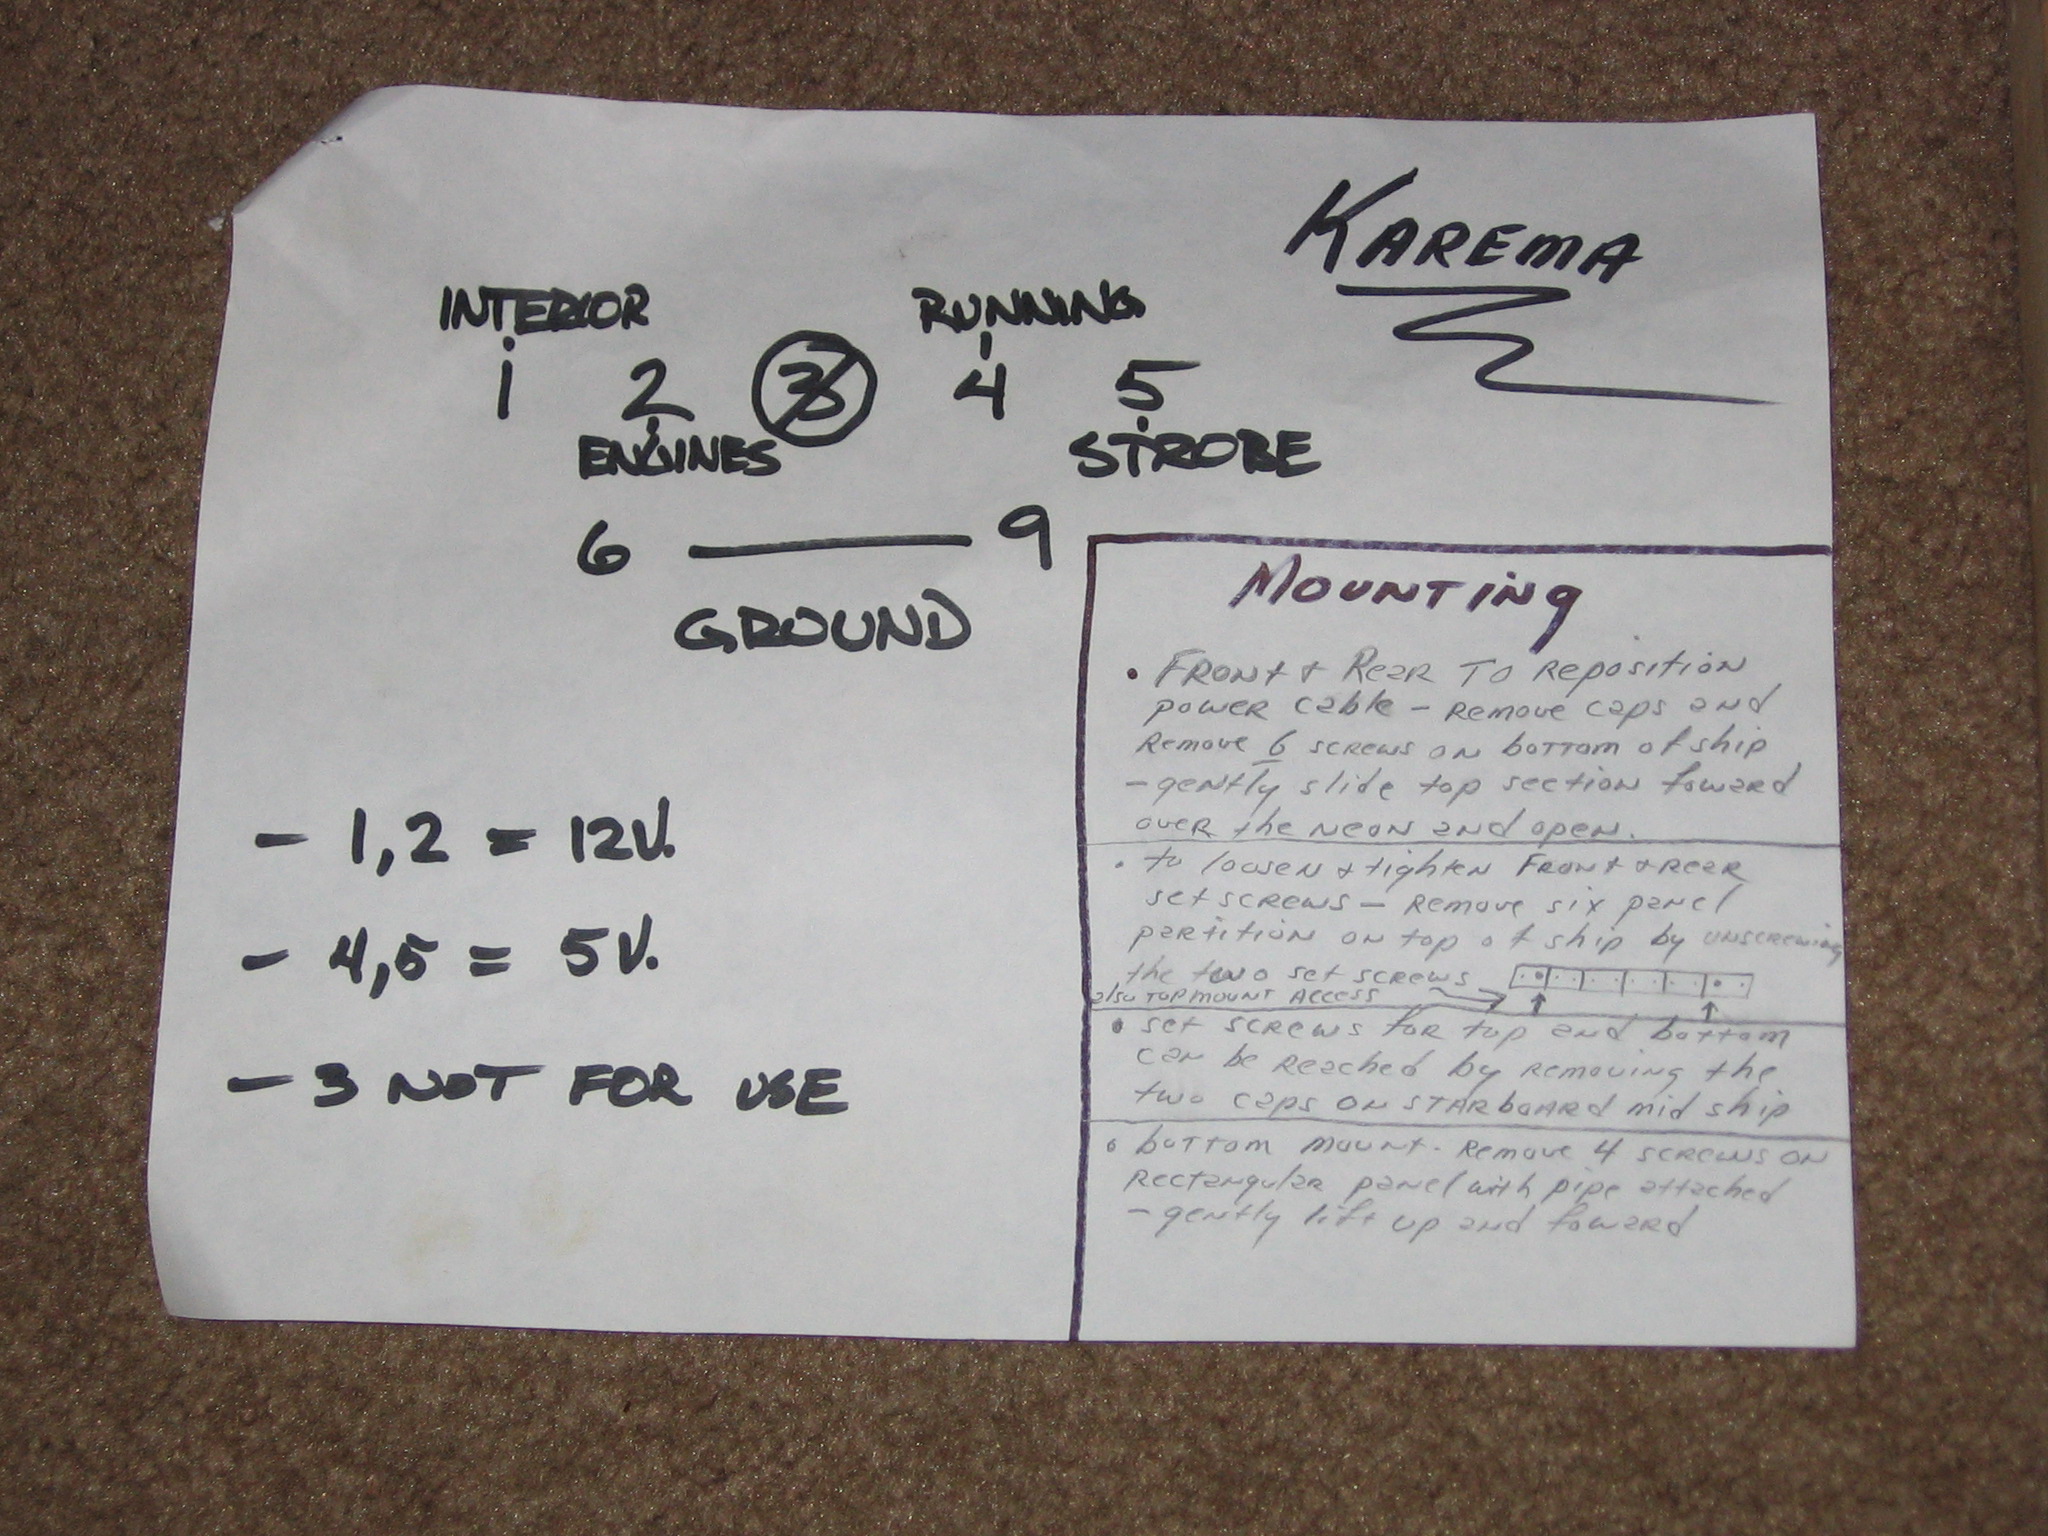 KAREMA
INTERIOR RUNNING
1 2 3 4 5
ENGINES STROBE
6 — 9
GROUND
- 1,2 = 12V.
- 4,5 = 5V.
- 3 NOT FOR USE
MOUNTING
• FRONT & REAR TO REPOSITION
power cable - remove caps and
Remove 6 screws on bottom of ship
- gently slide top section foward
over the neon and open.
• to loosen & tighten FRONT & REAR
set screws - remove six panel
partition on top of ship by unscrewing
the two set screws
also TOP MOUNT ACCESS
• set screws for top and bottom
can be reached by removing the
two caps on STARboard mid ship
• bottom mount. Remove 4 screws on
Rectangular panel with pipe attached
- gently lift up and foward